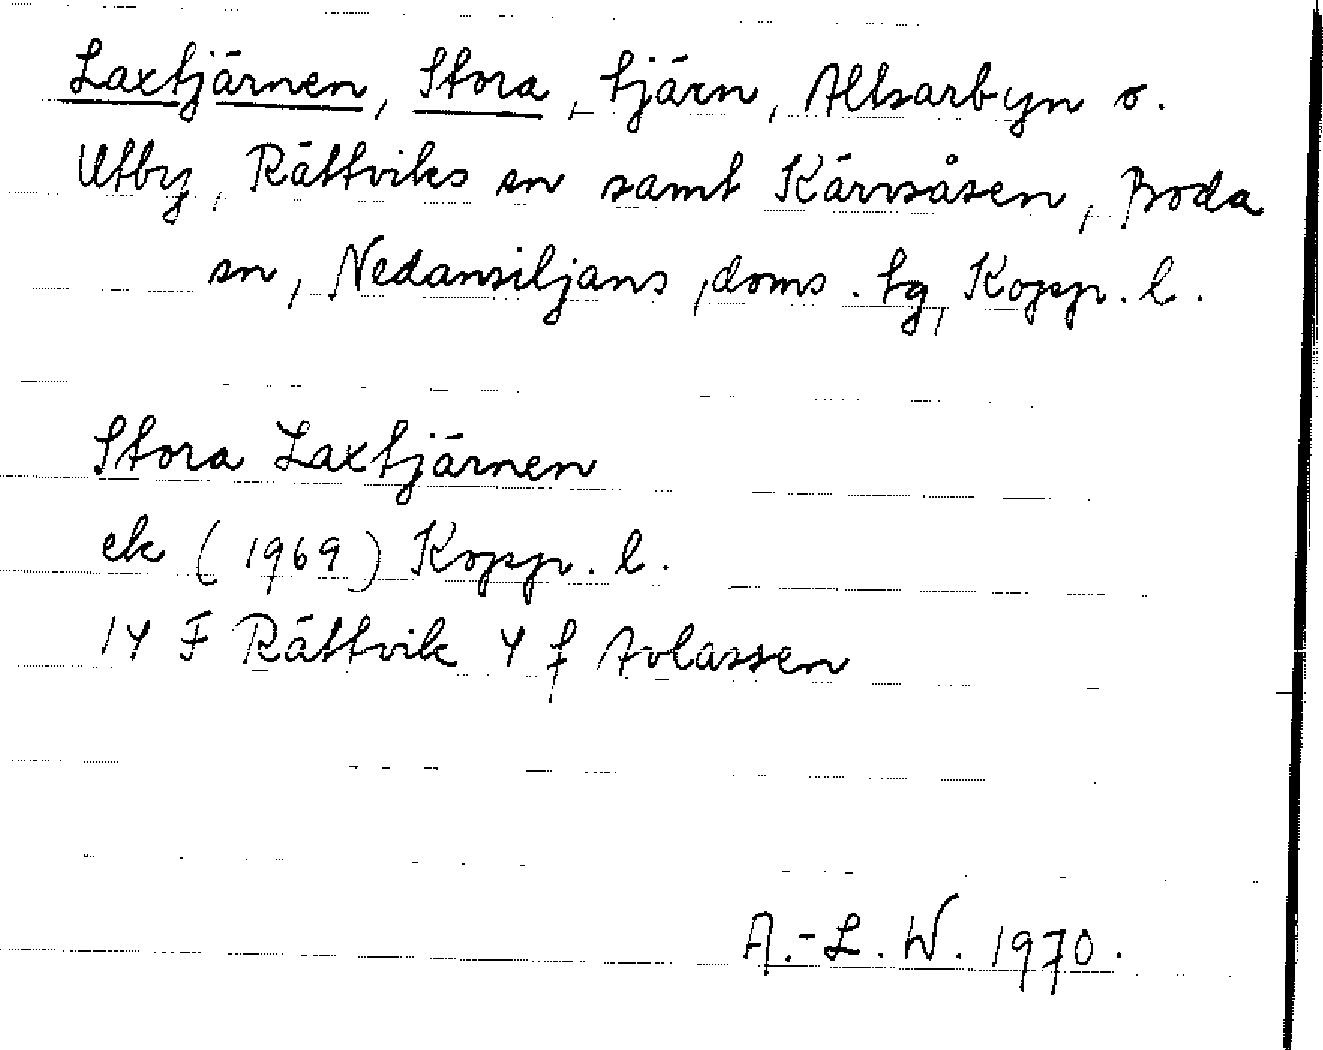 Laxtjärnen, Stora, tjärn, Altsarbyn o.
Utby, Rättviks sn samt Kärvsåsen, Boda
sn, Nedansiljans, doms. tg, Kopp. l.
Stora Laxtjärnen
ek (1969) Kopp. l.
14 F Rättvik 4 f Avlassen
A.-L. W. 1970.